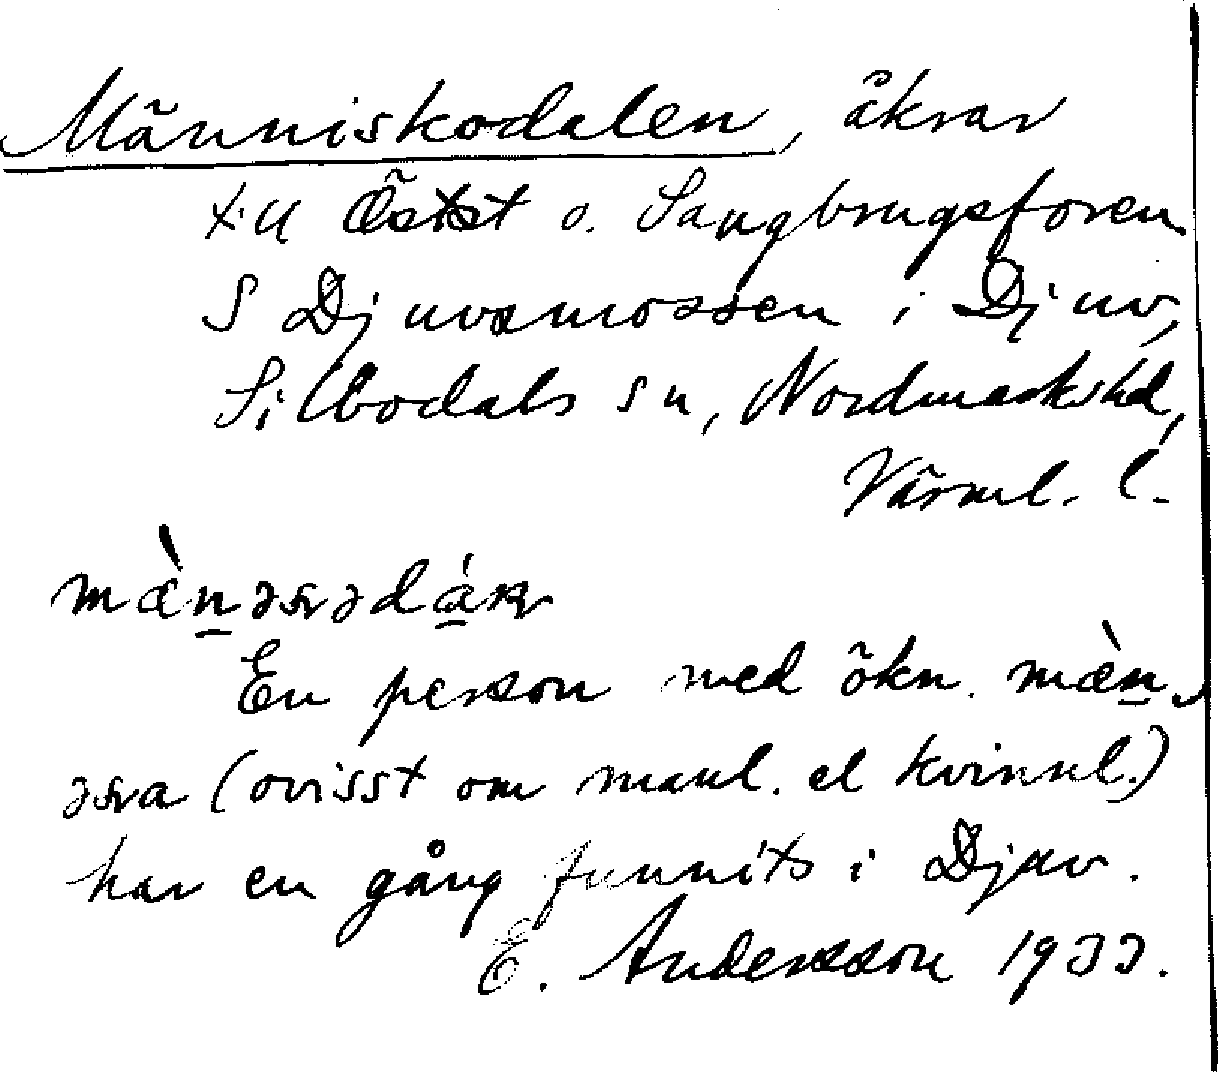 Människodalen, åkrar
t. u Östst o. Sangbrugsforen
S Djuvsmossen i Djuv,
Silbodals sn, Nordmarkshd,
Värml. l.
En person med ökn.
(ovisst om manl. el kvinnl.)
har en gång funnits i Djuv.
E. Andersson 1933.